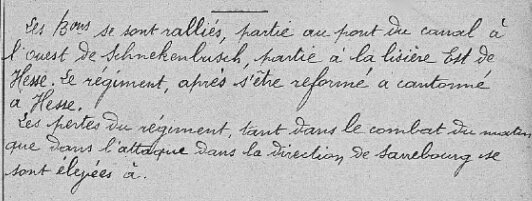 Les Bons se sont ralliés, partie au pont du canal à
l'Ouest de Schnekenbusch, partie à la lisière Est de
Hesse. Le régiment, après s'être reformé a cantonné
à Hesse.
Les pertes du régiment, tant dans le combat du matin
que dans l'attaque dans la direction de Sarrebourg se
sont élevées à.